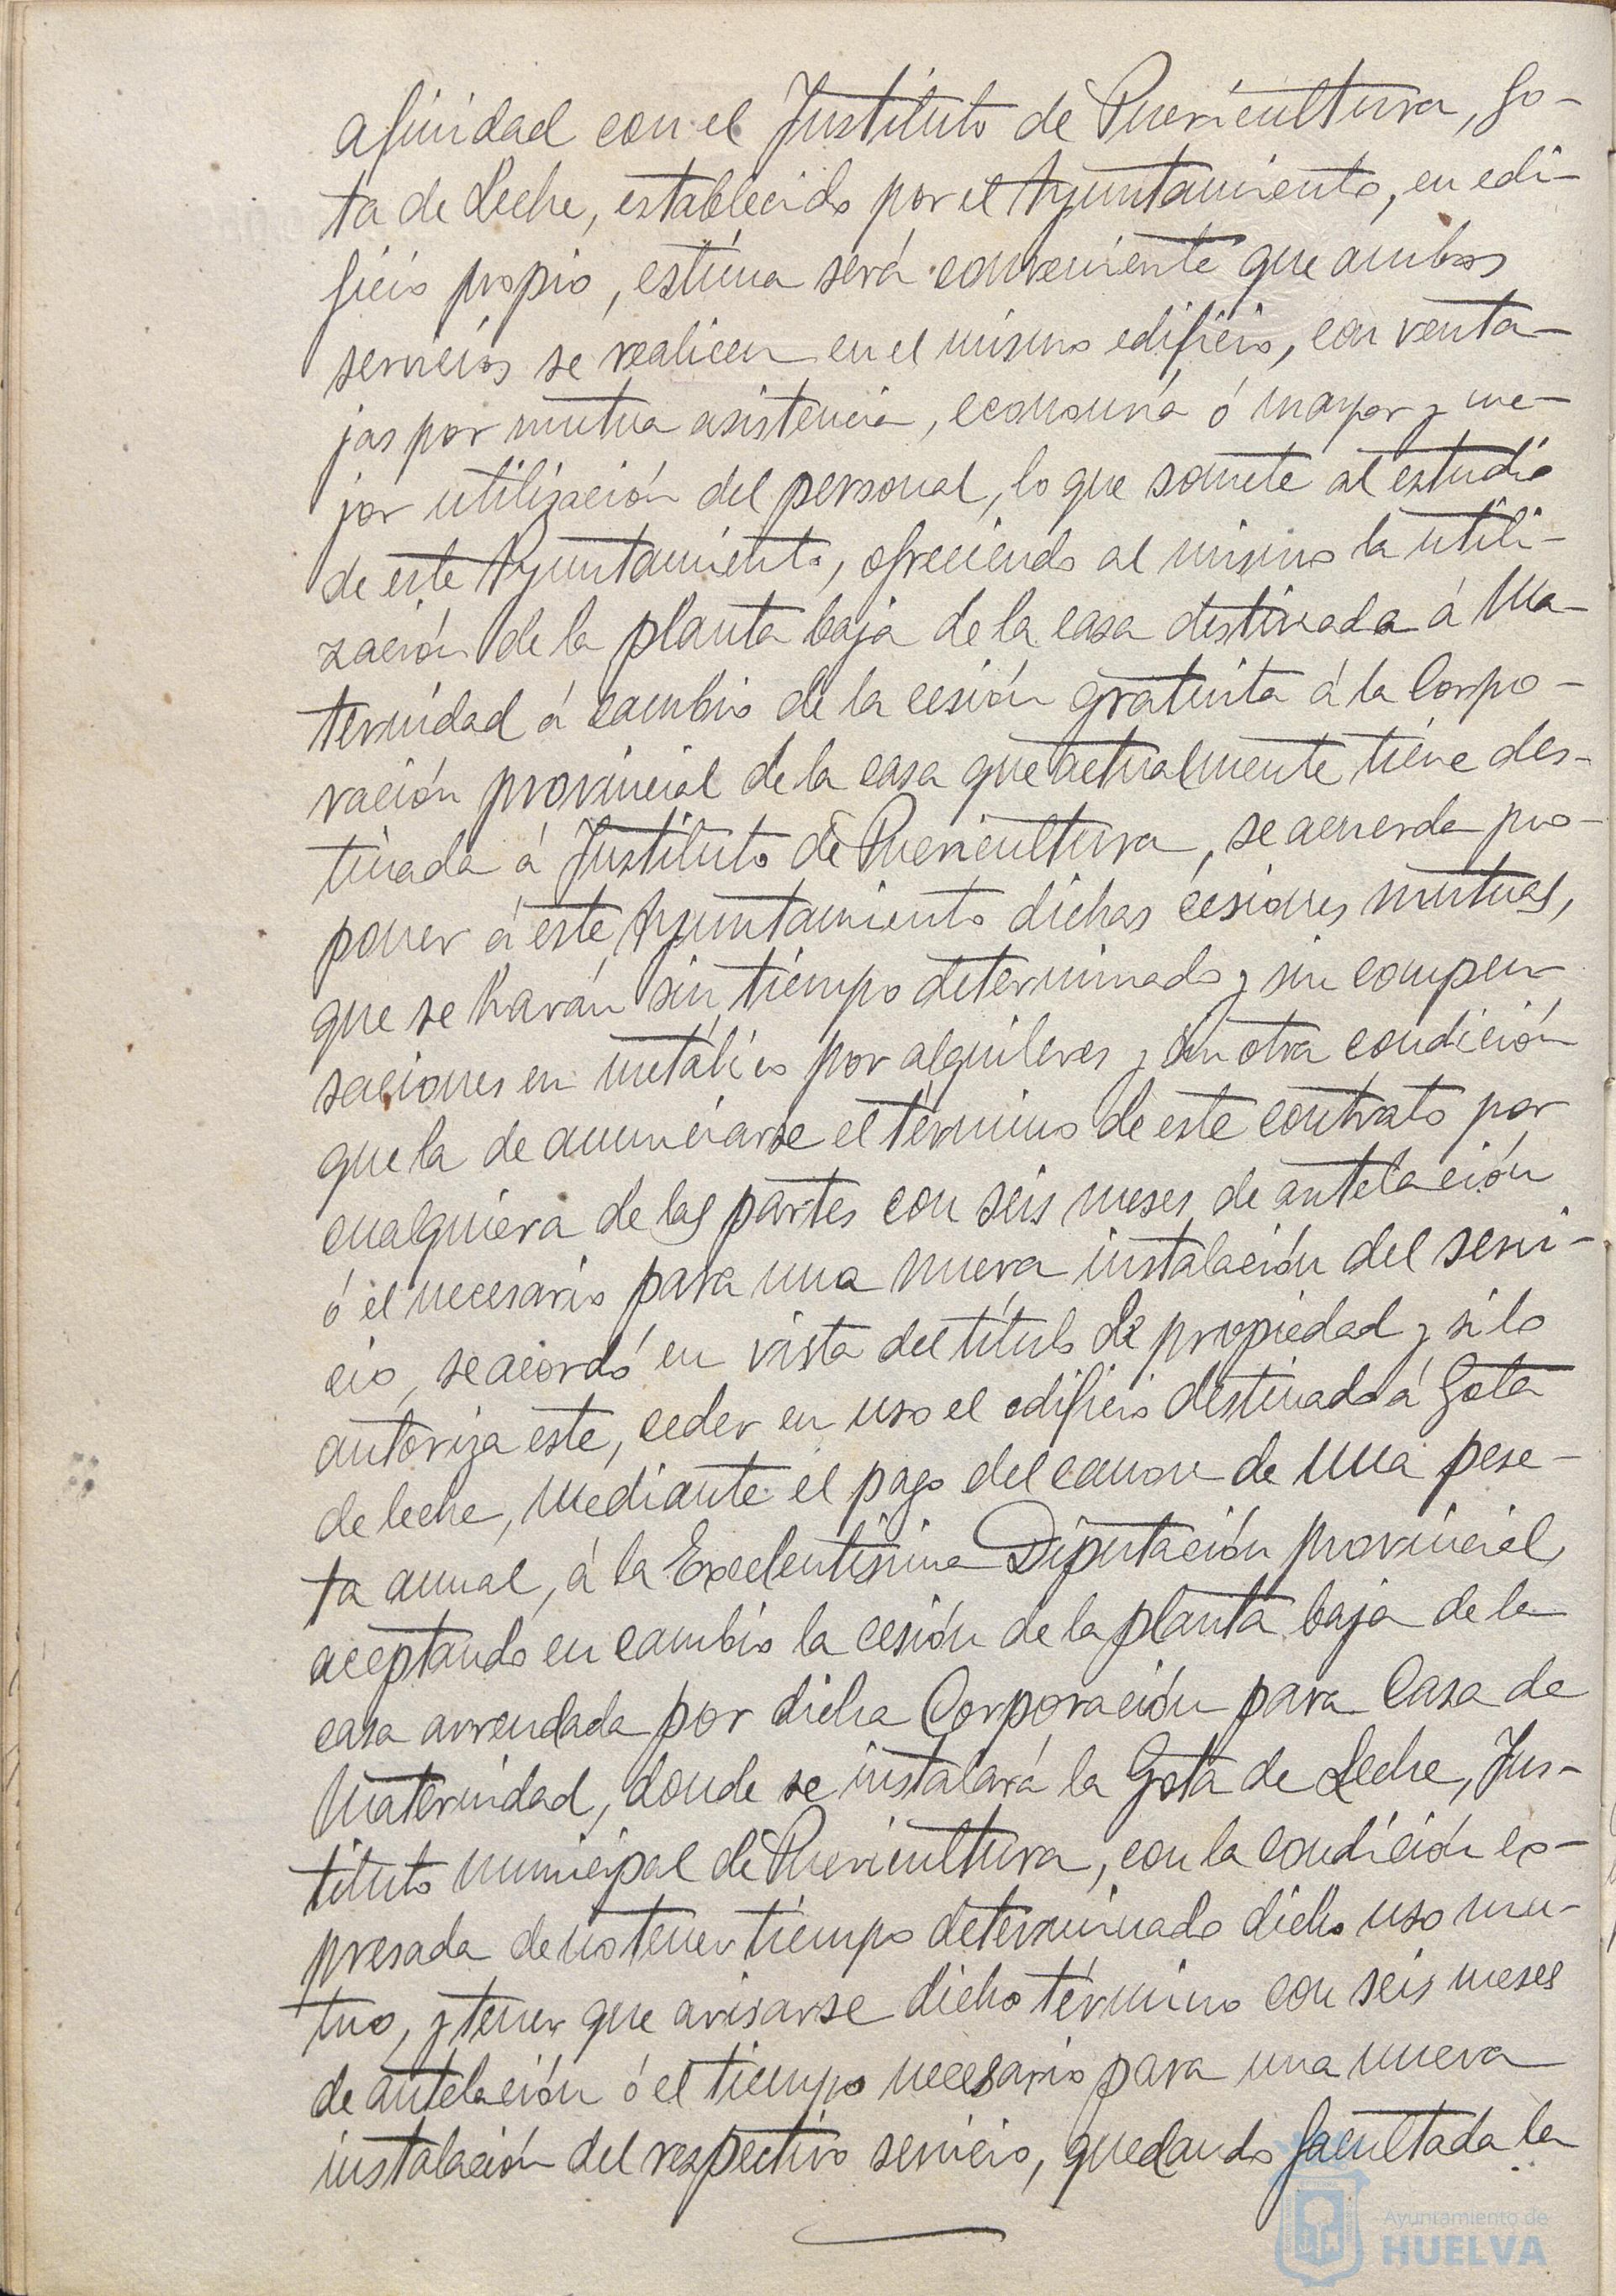 afinidad con el Instituto de Puericultura, Go-
ta de Leche, establecido por el Ayuntamiento, en edi-
ficio propio, estima será conveniente que ambos
servicios se realicen en el mismo edificio, con venta-
jas por mutua asistencia, economía ó mayor y me-
jor utilización del personal, lo que somete al estudio
de este Ayuntamiento, ofreciendo al mismo la utili-
zación de la planta baja de la casa destinada á Ma-
ternidad á cambio de la cesión gratuita á la Corpo-
ración provincial de la casa que actualmente tiene des-
tinada á Instituto de Puericultura, se acuerda pro-
poner á este Ayuntamiento dichas cesiones mutuas,
que se harán sin tiempo determinado y sin compen-
saciones en metálico por alquileres y sin otra condición
que la de anunciarse el término de este contrato por
cualquiera de las partes con seis meses de antelación
ó el necesario para una nueva instalación del servi-
cio, se acordó en vista del título de propiedad y si lo
autoriza este, ceder en uso el edificio destinado á Gota
de leche, mediante el pago del canon de una pese-
ta anual, á la Excelentísima Diputación provincial,
aceptando en cambio la cesión de la planta baja de la
casa arrendada por dicha Corporación para Casa de
Maternidad, donde se instalará la Gota de Leche, Ins-
tituto municipal de Puericultura, con la condición ex-
presada de no tener tiempo determinado dicho uso mu-
tuo, y tener que avisarse dicho término con seis meses
de antelación ó el tiempo necesario para una nueva
instalación del respectivo servicio, quedando facultada la
Ayuntamiento de
HUELVA